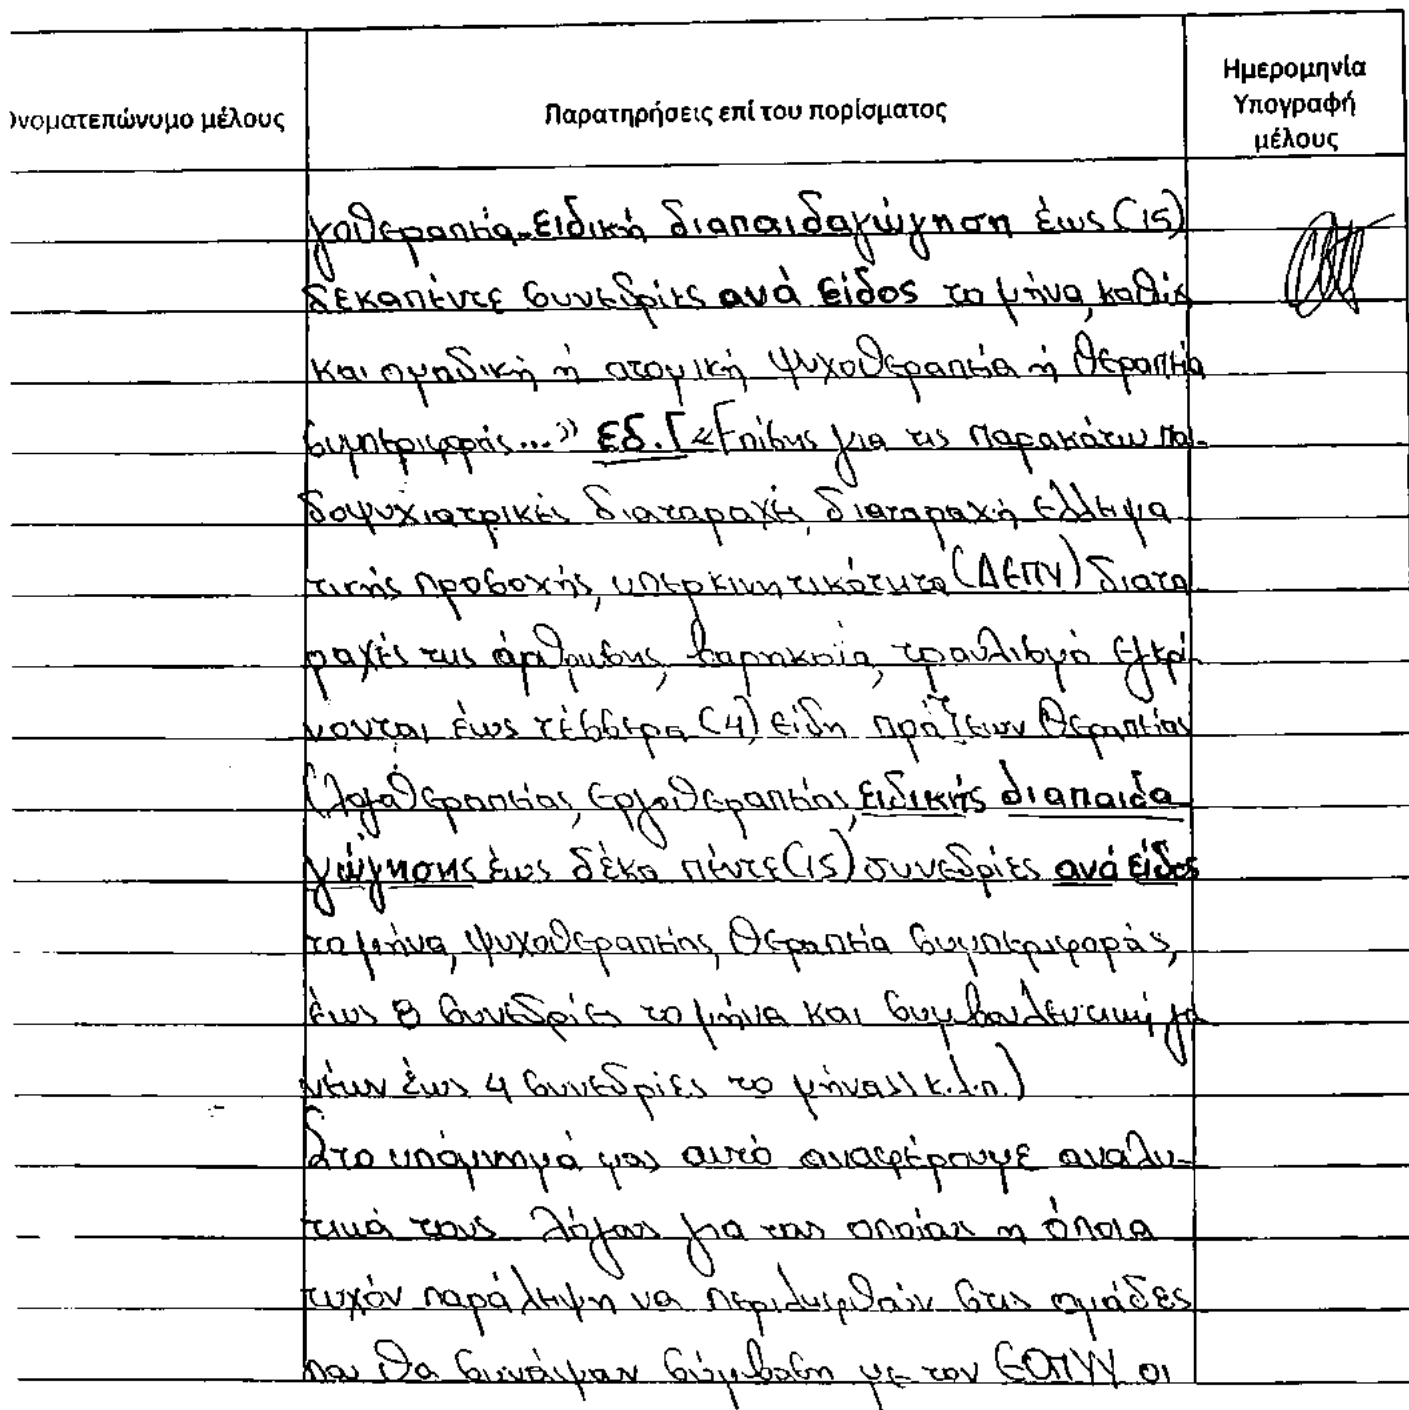 Ονοματεπώνυμο μέλους
Παρατηρήσεις επί του πορίσματος
Ημερομηνία
Υπογραφή
μέλους
γοθεραπεία-ειδική διαπαιδαγώγηση έως (15)
δεκαπέντε συνεδρίες ανά είδος το μήνα, καθώς
και ομαδική ή ατομική ψυχοθεραπεία ή θεραπεία
συμπεριφοράς...» εδ.Γ «Επίσης για τις παρακάτω παι-
δοψυχιατρικές διαταραχές, διαταραχή ελλειμμα
τικής προσοχής, υπερκινητικότητα (ΔΕΠΥ) διατα-
ραχές της άρθρωσης, βαρηκοΐα, τραυλισμό εγκρί-
νονται έως τέσσερα (4) είδη πράξεων θεραπείας
(λογοθεραπείας, εργοθεραπείας, ειδικής διαπαιδα-
γώγησης έως δέκα πέντε (15) συνεδρίες ανά είδος
το μήνα, ψυχοθεραπείας, θεραπεία συμπεριφοράς,
έως 8 συνεδρίες το μήνα και συμβουλευτική γο
νέων έως 4 συνεδρίες το μήνα» κ.λ.π.)
Στο υπόμνημά μας αυτό αναφέρουμε αναλυ-
τικά τους λόγους για τους οποίους η όποια
τυχόν παράλειψη να περιληφθούν στις ομάδες
που θα συνάψουν σύμβαση με τον ΕΟΠΥΥ οι